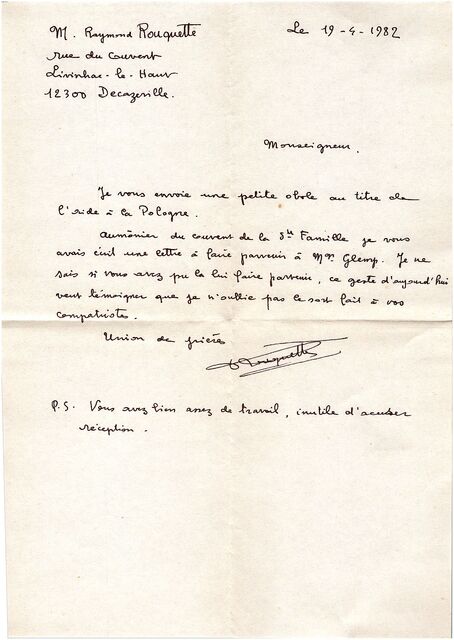 M. Raymond Rouquette
Le 19-4-1982
rue du Couvent
Livinhac-le-Haut
12300 Decazeville.
Monseigneur,
Je vous envoie une petite obole au titre de
l'aide à la Pologne.
Aumônier du couvent de la Ste Famille je vous
avais écrit une lettre à faire parvenir à Mgr Glemp. Je ne
sais si vous avez pu la lui faire parvenir, ce geste d'aujourd'hui
veut témoigner que je n'oublie pas le sort fait à vos
compatriotes.
Union de prières
Rouquette
P.S. Vous avez bien assez de travail, inutile d'accuser
réception.